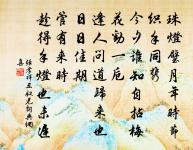 珠燈璧月年時節
纖手同攜
今夕誰知自拈梅
花勸一卮
逢人問道歸來也
日日佳期
管有來時
趁得收燈也未遲